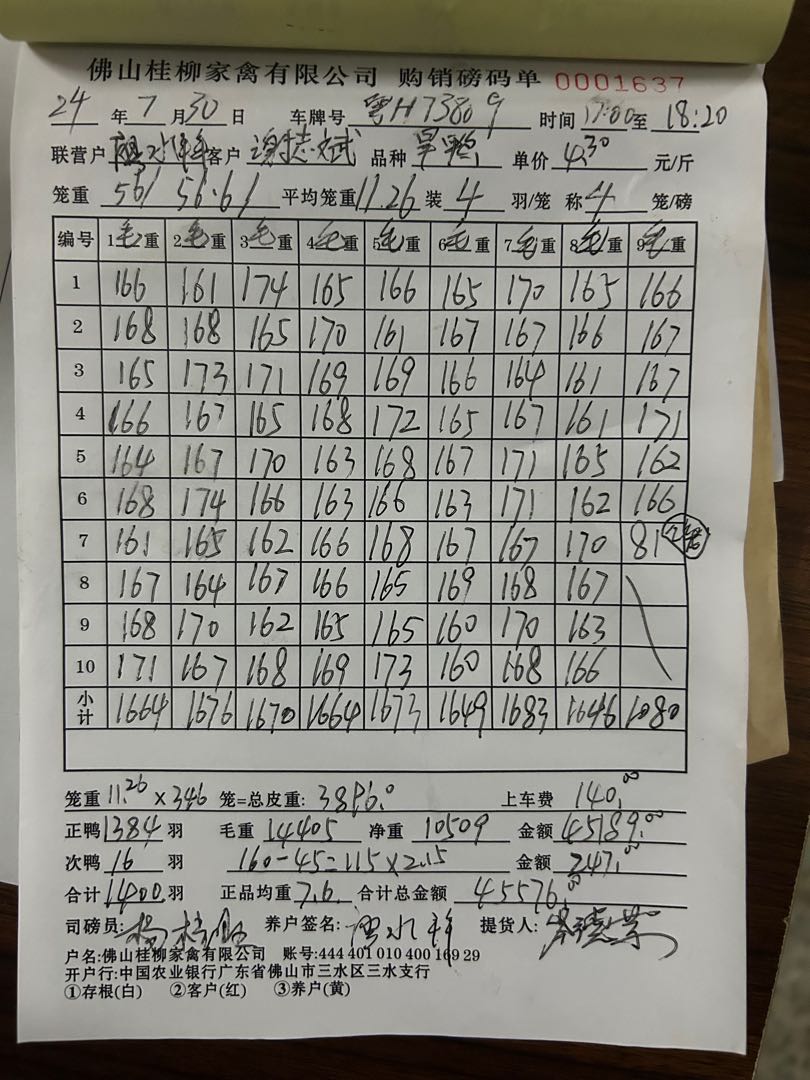 佛山桂柳家禽有限公司 购销磅码单 0001637
24 年 7 月 30 日 车牌号 粤H73809 时间 17:00 至 18:20
联营户 客户 谢志斌 品种 旱鸭 单价 4.30 元/斤
笼重 561 56.61 平均笼重 11.26 装 4 羽/笼 称 4 笼/磅
编号 1毛重 2毛重 3毛重 4毛重 5毛重 6毛重 7毛重 8毛重 9毛重
1 166 161 174 165 166 165 170 165 166
2 168 168 165 170 161 167 167 166 167
3 165 173 171 169 169 166 164 161 167
4 166 167 165 168 172 165 167 161 171
5 164 167 170 163 168 167 171 165 162
6 168 174 166 163 166 163 171 162 166
7 161 165 162 166 168 167 167 170 81 2笼
8 167 164 167 166 165 169 168 167
9 168 170 162 165 165 160 170 163
10 171 167 168 169 173 160 168 166
小计 1664 1676 1670 1664 1673 1649 1683 1646 1080
笼重 11.26 × 346 笼=总皮重: 3896.0 上车费 140.00
正鸭 1384 羽 毛重 14405 净重 10509 金额 45189.00
次鸭 16 羽 160-45=115×2.15 金额 247.00
合计 1400 羽 正品均重 7.6 合计总金额 45576.00
司磅员: 养户签名: 提货人:
户名:佛山桂柳家禽有限公司 账号:444 401 010 400 169 29
开户行:中国农业银行广东省佛山市三水区三水支行
①存根(白) ②客户(红) ③养户(黄)